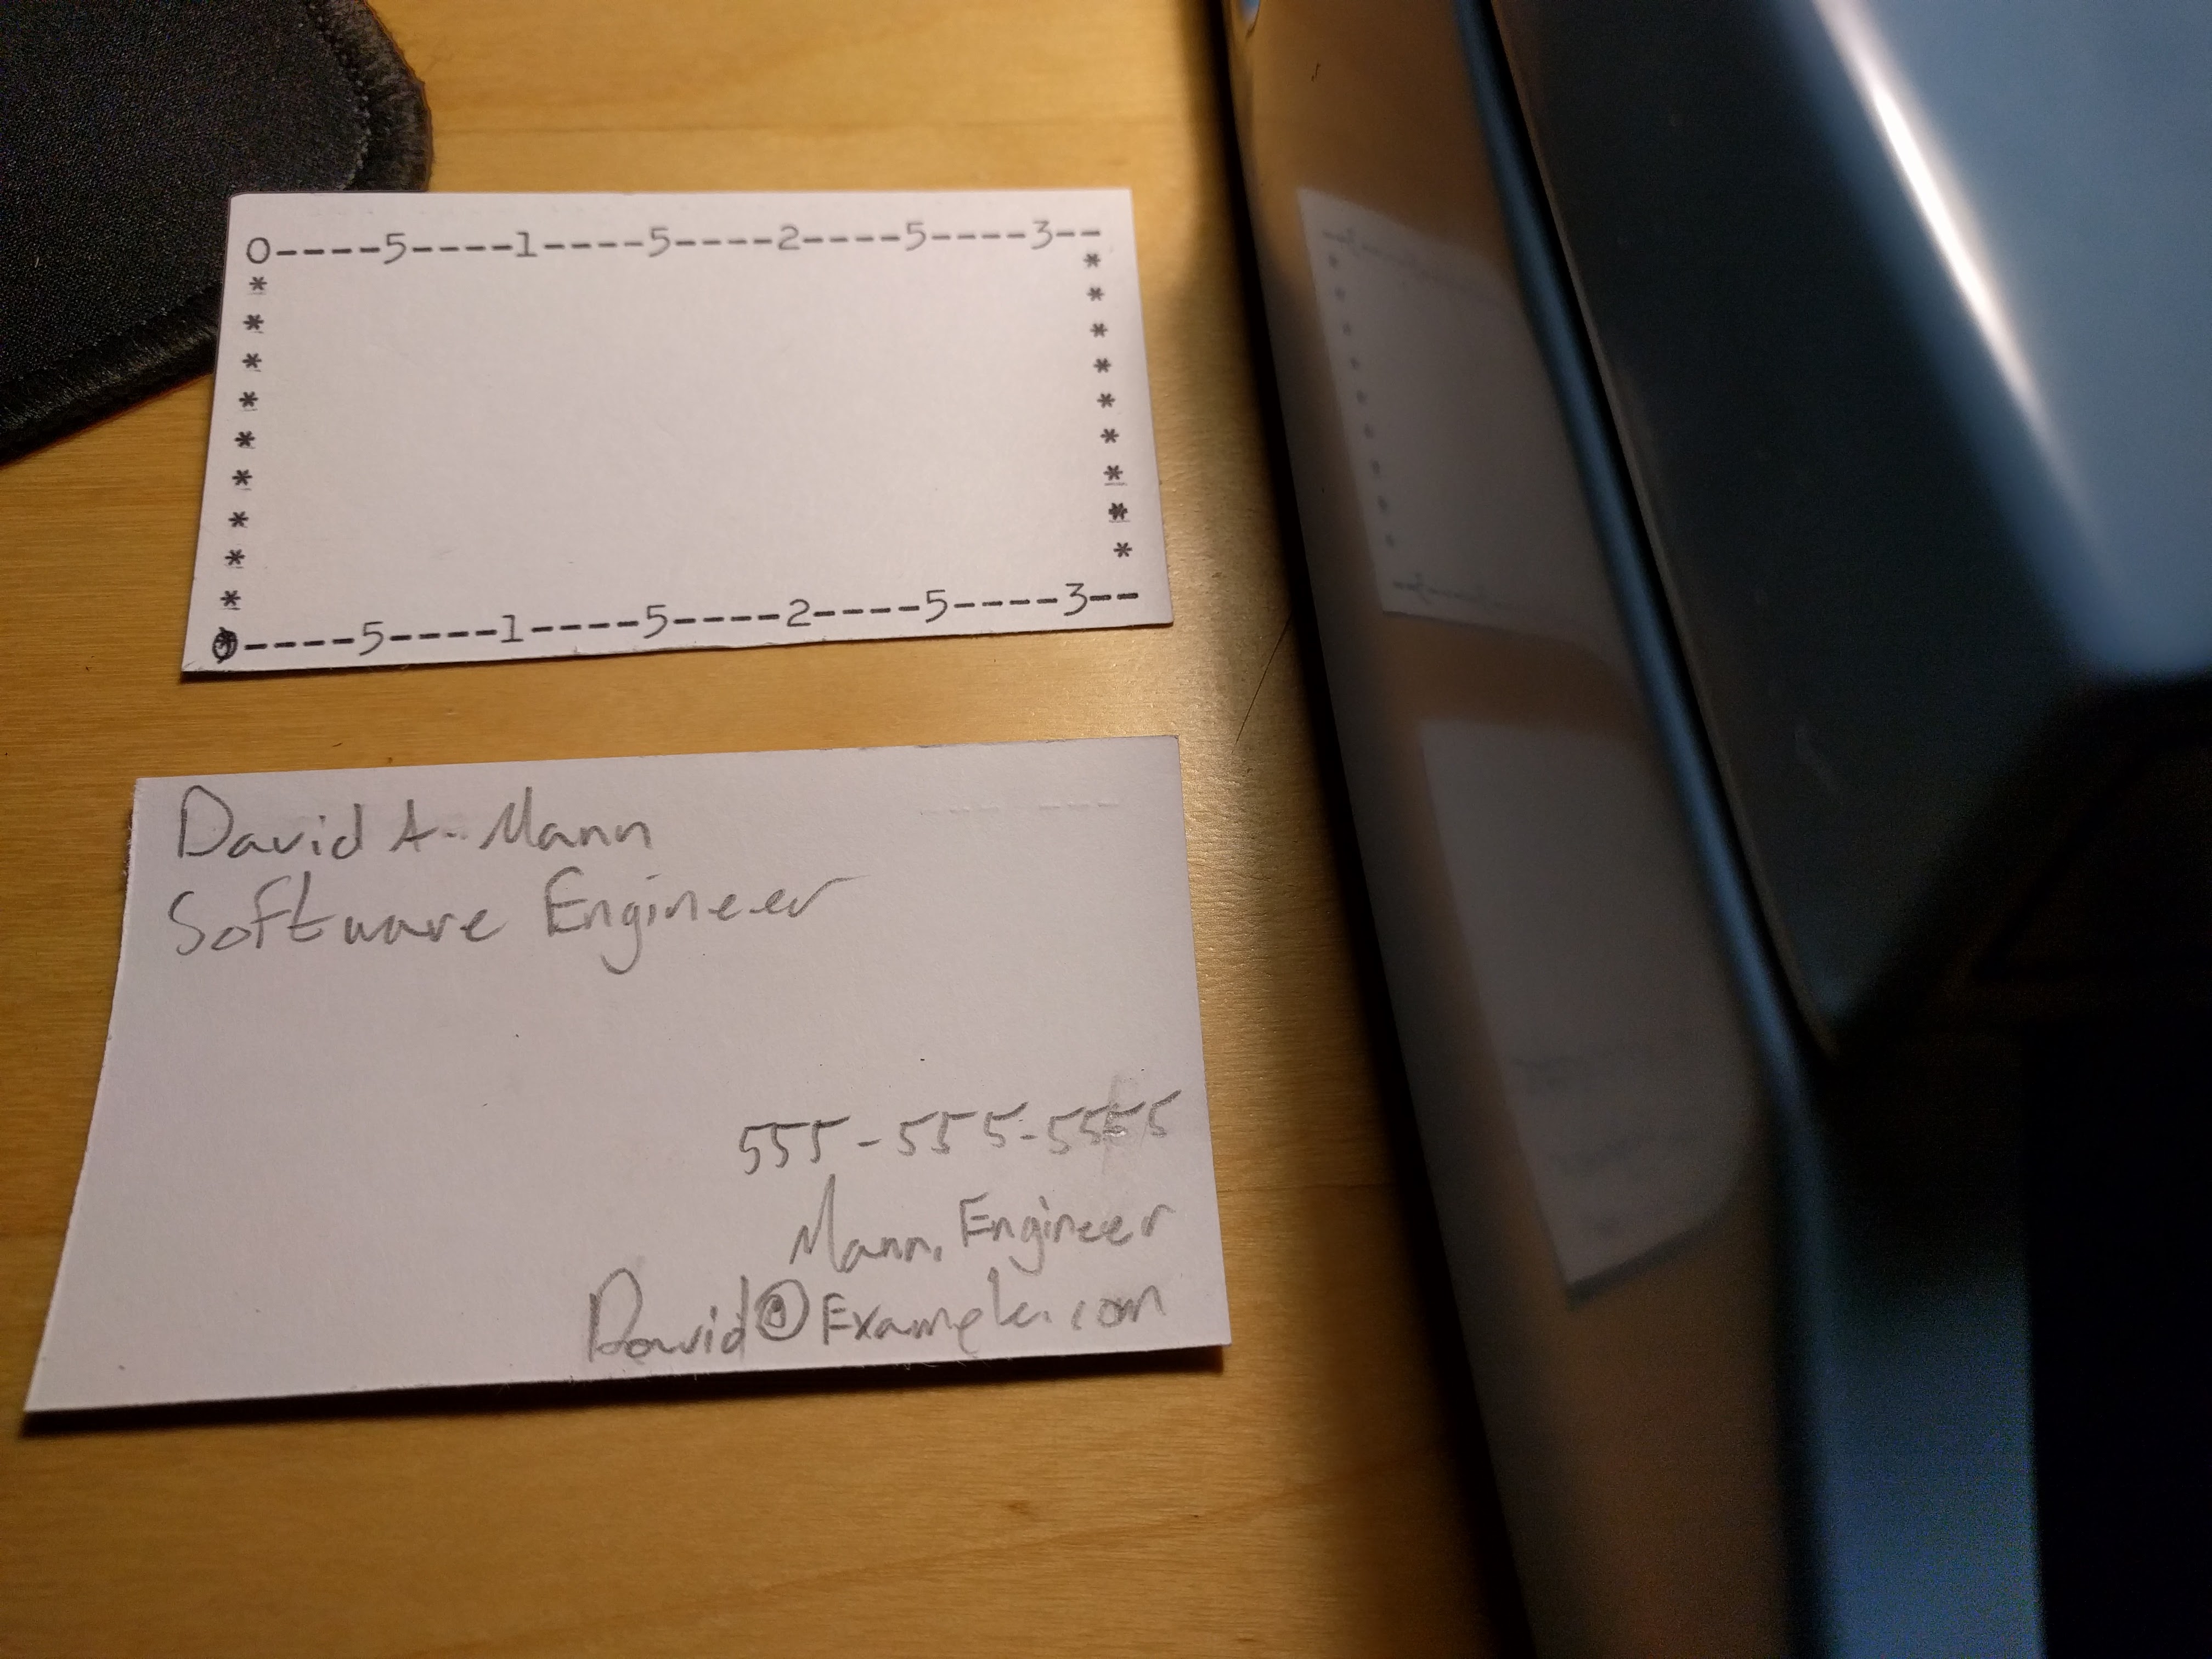 0----5----1----5----2----5----3--
* *
* *
* *
* *
* *
* *
* *
* *
* *
0----5----1----5----2----5----3--
David A. Mann
Software Engineer
555-555-5555
Mann.Engineer
David@Example.com